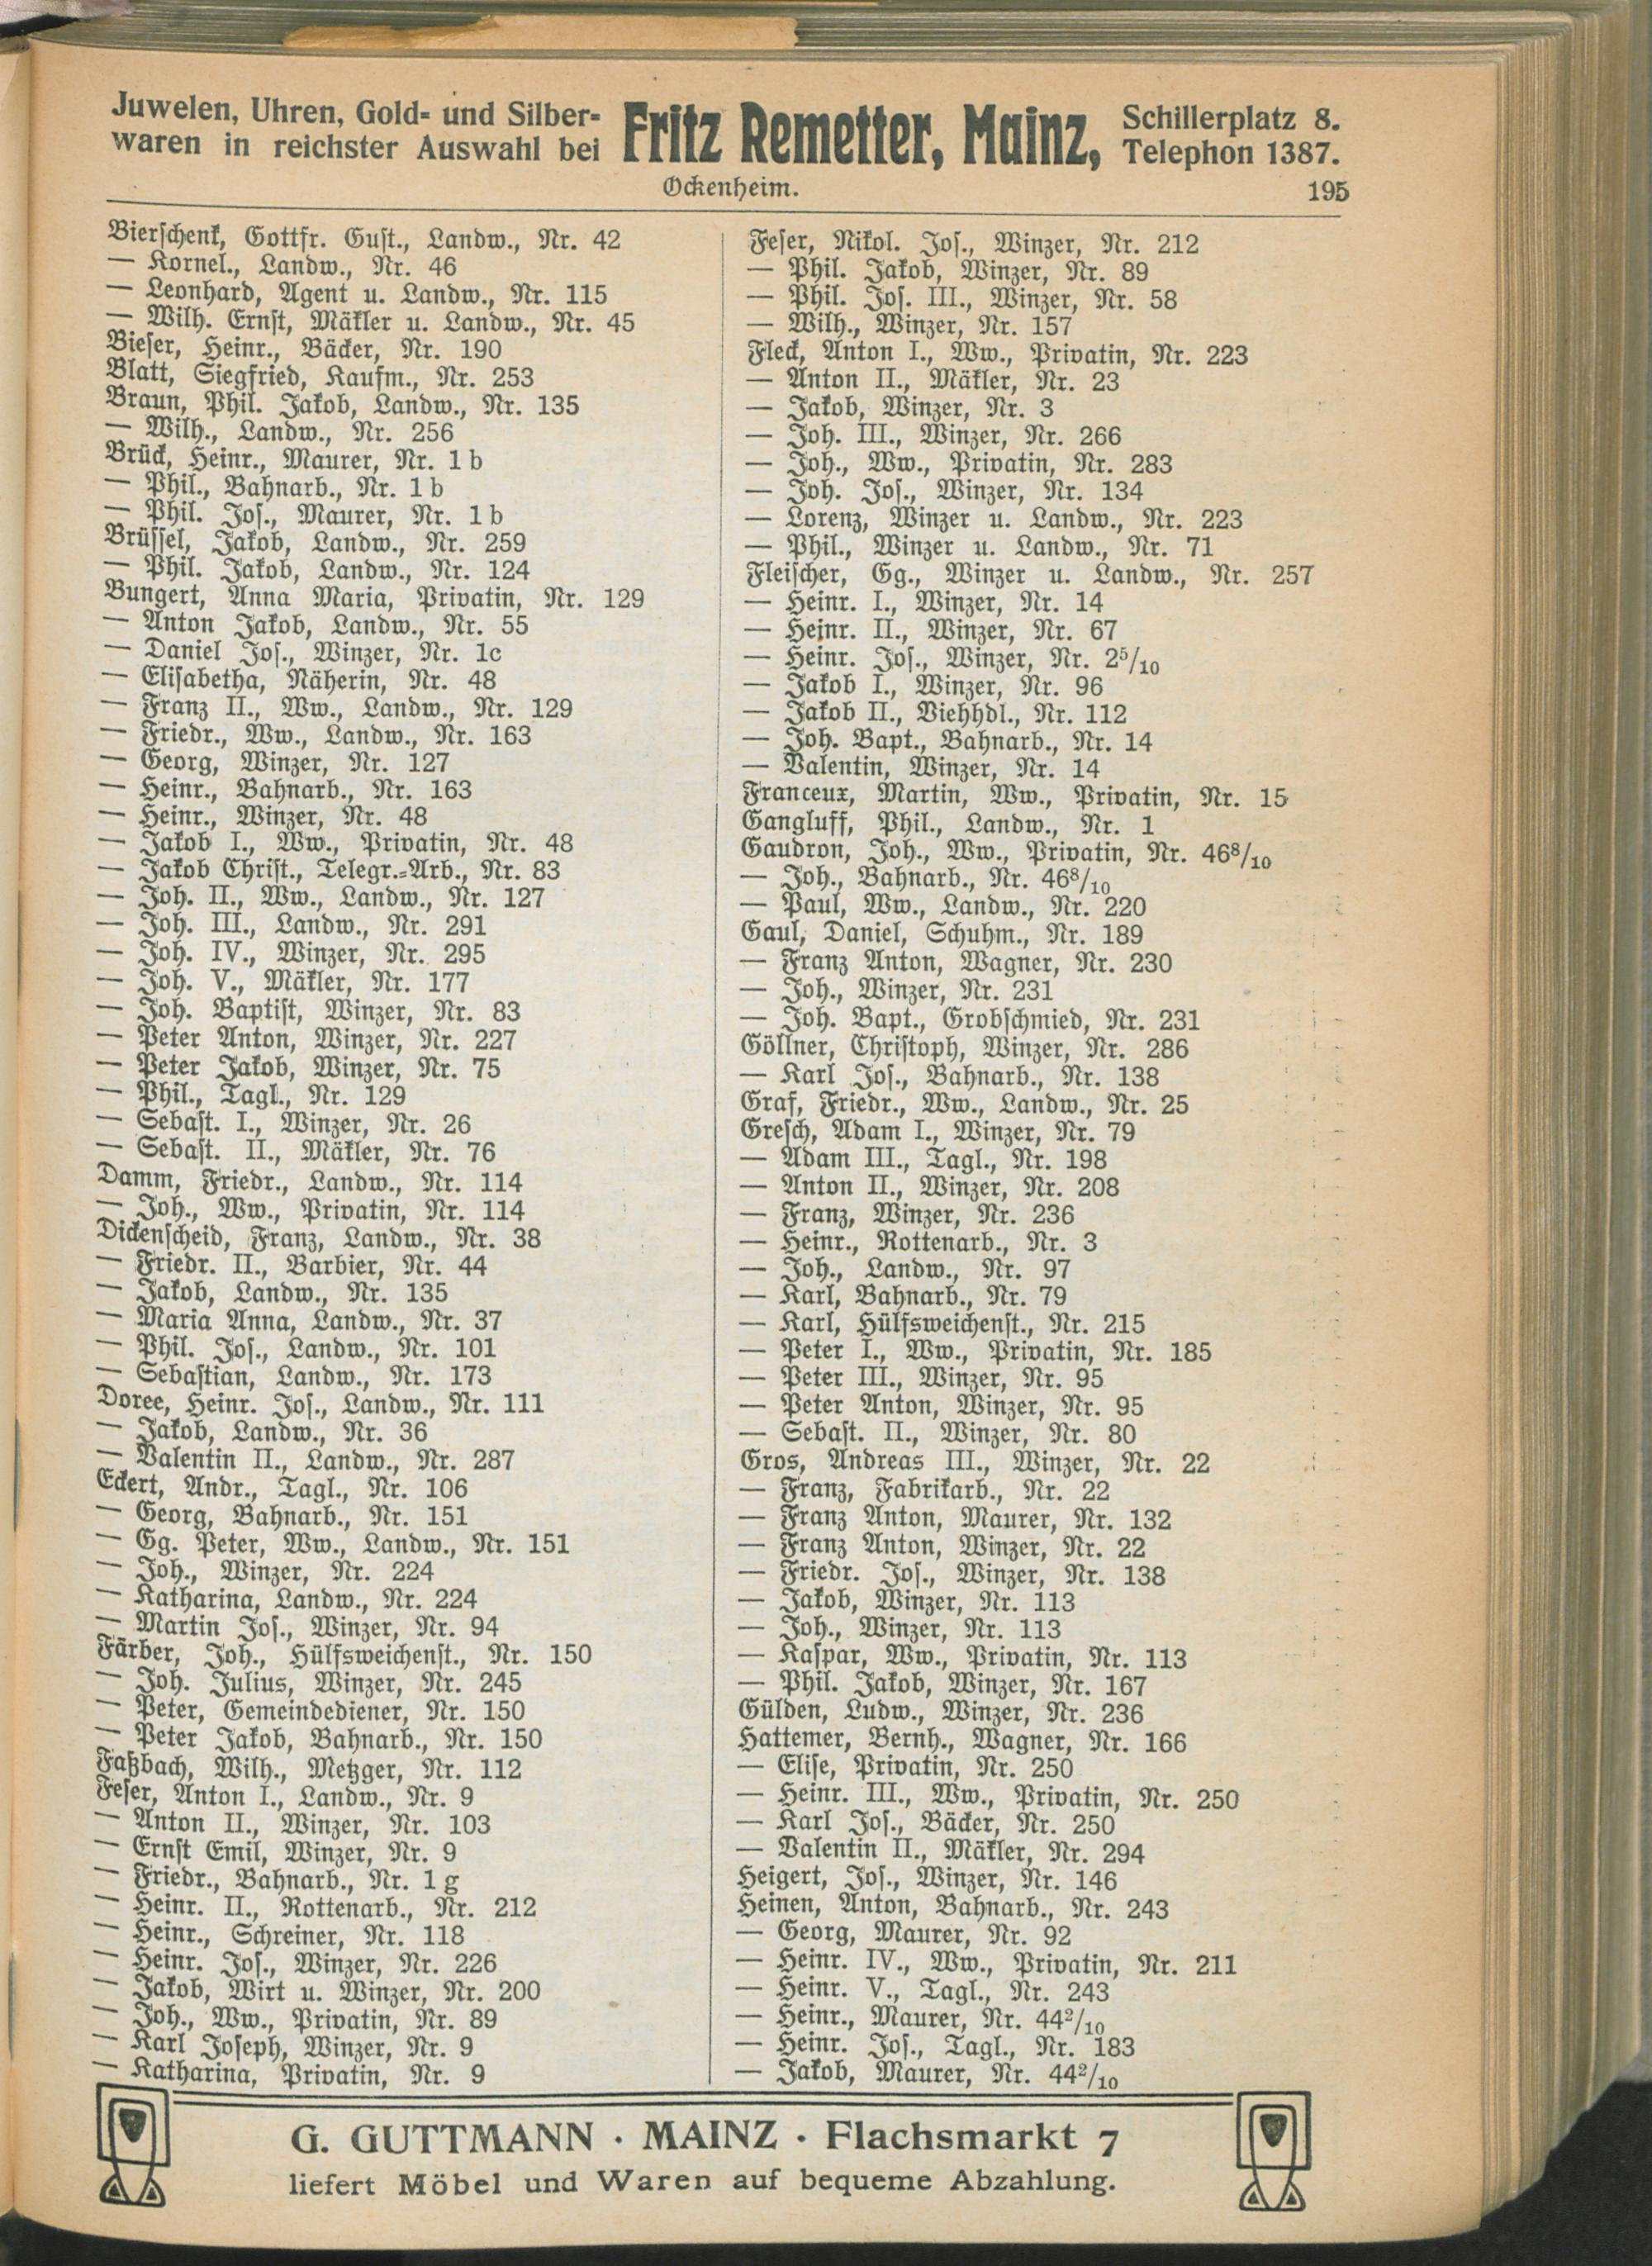 Juwelen, Uhren, Gold- und Silber-
waren in reichster Auswahl bei
Fritz Remetter, Mainz,
Schillerplatz 8.
Telephon 1387.
Ockenheim.
195
Bierschenk, Gottfr. Gust., Landw., Nr. 42
— Kornel., Landw., Nr. 46
— Leonhard, Agent u. Landw., Nr. 115
— Wilh. Ernst, Mäkler u. Landw., Nr. 45
Bieser, Heinr., Bäcker, Nr. 190
Blatt, Siegfried, Kaufm., Nr. 253
Braun, Phil. Jakob, Landw., Nr. 135
— Wilh., Landw., Nr. 256
Brück, Heinr., Maurer, Nr. 1 b
— Phil., Bahnarb., Nr. 1 b
— Phil. Jos., Maurer, Nr. 1 b
Brüssel, Jakob, Landw., Nr. 259
— Phil. Jakob, Landw., Nr. 124
Bungert, Anna Maria, Privatin, Nr. 129
— Anton Jakob, Landw., Nr. 55
— Daniel Jos., Winzer, Nr. 1c
— Elisabetha, Näherin, Nr. 48
— Franz II., Ww., Landw., Nr. 129
— Friedr., Ww., Landw., Nr. 163
— Georg, Winzer, Nr. 127
— Heinr., Bahnarb., Nr. 163
— Heinr., Winzer, Nr. 48
— Jakob I., Ww., Privatin, Nr. 48
— Jakob Christ., Telegr.-Arb., Nr. 83
— Joh. II., Ww., Landw., Nr. 127
— Joh. III., Landw., Nr. 291
— Joh. IV., Winzer, Nr. 295
— Joh. V., Mäkler, Nr. 177
— Joh. Baptist, Winzer, Nr. 83
— Peter Anton, Winzer, Nr. 227
— Peter Jakob, Winzer, Nr. 75
— Phil., Tagl., Nr. 129
— Sebast. I., Winzer, Nr. 26
— Sebast. II., Mäkler, Nr. 76
Damm, Friedr., Landw., Nr. 114
— Joh., Ww., Privatin, Nr. 114
Dickenscheid, Franz, Landw., Nr. 38
— Friedr. II., Barbier, Nr. 44
— Jakob, Landw., Nr. 135
— Maria Anna, Landw., Nr. 37
— Phil. Jos., Landw., Nr. 101
— Sebastian, Landw., Nr. 173
Doree, Heinr. Jos., Landw., Nr. 111
— Jakob, Landw., Nr. 36
— Valentin II., Landw., Nr. 287
Eckert, Andr., Tagl., Nr. 106
— Georg, Bahnarb., Nr. 151
— Gg. Peter, Ww., Landw., Nr. 151
— Joh., Winzer, Nr. 224
— Katharina, Landw., Nr. 224
— Martin Jos., Winzer, Nr. 94
Färber, Joh., Hülfsweichenst., Nr. 150
— Joh. Julius, Winzer, Nr. 245
— Peter, Gemeindediener, Nr. 150
— Peter Jakob, Bahnarb., Nr. 150
Faßbach, Wilh., Metzger, Nr. 112
Feser, Anton I., Landw., Nr. 9
— Anton II., Winzer, Nr. 103
— Ernst Emil, Winzer, Nr. 9
— Friedr., Bahnarb., Nr. 1 g
— Heinr. II., Rottenarb., Nr. 212
— Heinr., Schreiner, Nr. 118
— Heinr. Jos., Winzer, Nr. 226
— Jakob, Wirt u. Winzer, Nr. 200
— Joh., Ww., Privatin, Nr. 89
— Karl Joseph, Winzer, Nr. 9
— Katharina, Privatin, Nr. 9
Feser, Nikol. Jos., Winzer, Nr. 212
— Phil. Jakob, Winzer, Nr. 89
— Phil. Jos. III., Winzer, Nr. 58
— Wilh., Winzer, Nr. 157
Fleck, Anton I., Ww., Privatin, Nr. 223
— Anton II., Mäkler, Nr. 23
— Jakob, Winzer, Nr. 3
— Joh. III., Winzer, Nr. 266
— Joh., Ww., Privatin, Nr. 283
— Joh. Jos., Winzer, Nr. 134
— Lorenz, Winzer u. Landw., Nr. 223
— Phil., Winzer u. Landw., Nr. 71
Fleischer, Gg., Winzer u. Landw., Nr. 257
— Heinr. I., Winzer, Nr. 14
— Heinr. II., Winzer, Nr. 67
— Heinr. Jos., Winzer, Nr. 2⁵/₁₀
— Jakob I., Winzer, Nr. 96
— Jakob II., Viehhdl., Nr. 112
— Joh. Bapt., Bahnarb., Nr. 14
— Valentin, Winzer, Nr. 14
Franceux, Martin, Ww., Privatin, Nr. 15
Gangluff, Phil., Landw., Nr. 1
Gaudron, Joh., Ww., Privatin, Nr. 46⁸/₁₀
— Joh., Bahnarb., Nr. 46⁸/₁₀
— Paul, Ww., Landw., Nr. 220
Gaul, Daniel, Schuhm., Nr. 189
— Franz Anton, Wagner, Nr. 230
— Joh., Winzer, Nr. 231
— Joh. Bapt., Grobschmied, Nr. 231
Göllner, Christoph, Winzer, Nr. 286
— Karl Jos., Bahnarb., Nr. 138
Graf, Friedr., Ww., Landw., Nr. 25
Gresch, Adam I., Winzer, Nr. 79
— Adam III., Tagl., Nr. 198
— Anton II., Winzer, Nr. 208
— Franz, Winzer, Nr. 236
— Heinr., Rottenarb., Nr. 3
— Joh., Landw., Nr. 97
— Karl, Bahnarb., Nr. 79
— Karl, Hülfsweichenst., Nr. 215
— Peter I., Ww., Privatin, Nr. 185
— Peter III., Winzer, Nr. 95
— Peter Anton, Winzer, Nr. 95
— Sebast. II., Winzer, Nr. 80
Gros, Andreas III., Winzer, Nr. 22
— Franz, Fabrikarb., Nr. 22
— Franz Anton, Maurer, Nr. 132
— Franz Anton, Winzer, Nr. 22
— Friedr. Jos., Winzer, Nr. 138
— Jakob, Winzer, Nr. 113
— Joh., Winzer, Nr. 113
— Kaspar, Ww., Privatin, Nr. 113
— Phil. Jakob, Winzer, Nr. 167
Gülden, Ludw., Winzer, Nr. 236
Hattemer, Bernh., Wagner, Nr. 166
— Elise, Privatin, Nr. 250
— Heinr. III., Ww., Privatin, Nr. 250
— Karl Jos., Bäcker, Nr. 250
— Valentin II., Mäkler, Nr. 294
Heigert, Jos., Winzer, Nr. 146
Heinen, Anton, Bahnarb., Nr. 243
— Georg, Maurer, Nr. 92
— Heinr. IV., Ww., Privatin, Nr. 211
— Heinr. V., Tagl., Nr. 243
— Heinr., Maurer, Nr. 44²/₁₀
— Heinr. Jos., Tagl., Nr. 183
— Jakob, Maurer, Nr. 44²/₁₀
G. GUTTMANN · MAINZ · Flachsmarkt 7
liefert Möbel und Waren auf bequeme Abzahlung.